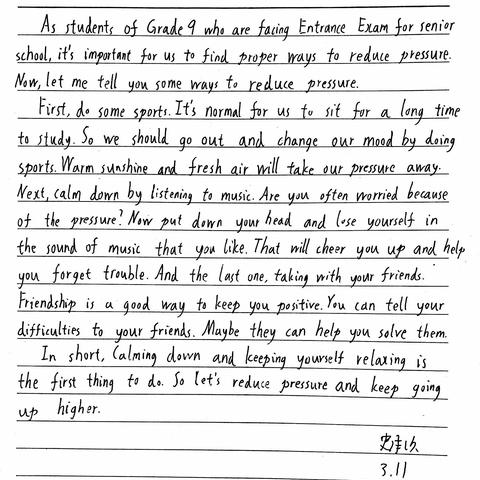 As students of Grade 9 who are facing Entrance Exam for senior
school, it's important for us to find proper ways to reduce pressure.
Now, let me tell you some ways to reduce pressure.
First, do some sports. It's normal for us to sit for a long time
to study. So we should go out and change our mood by doing
sports. Warm sunshine and fresh air will take our pressure away.
Next, calm down by listening to music. Are you often worried because
of the pressure? Now put down your head and lose yourself in
the sound of music that you like. That will cheer you up and help
you forget trouble. And the last one, taking with your friends.
Friendship is a good way to keep you positive. You can tell your
difficulties to your friends. Maybe they can help you solve them.
In short, Calming down and keeping yourself relaxing is
the first thing to do. So let's reduce pressure and keep going
up higher.
3.11